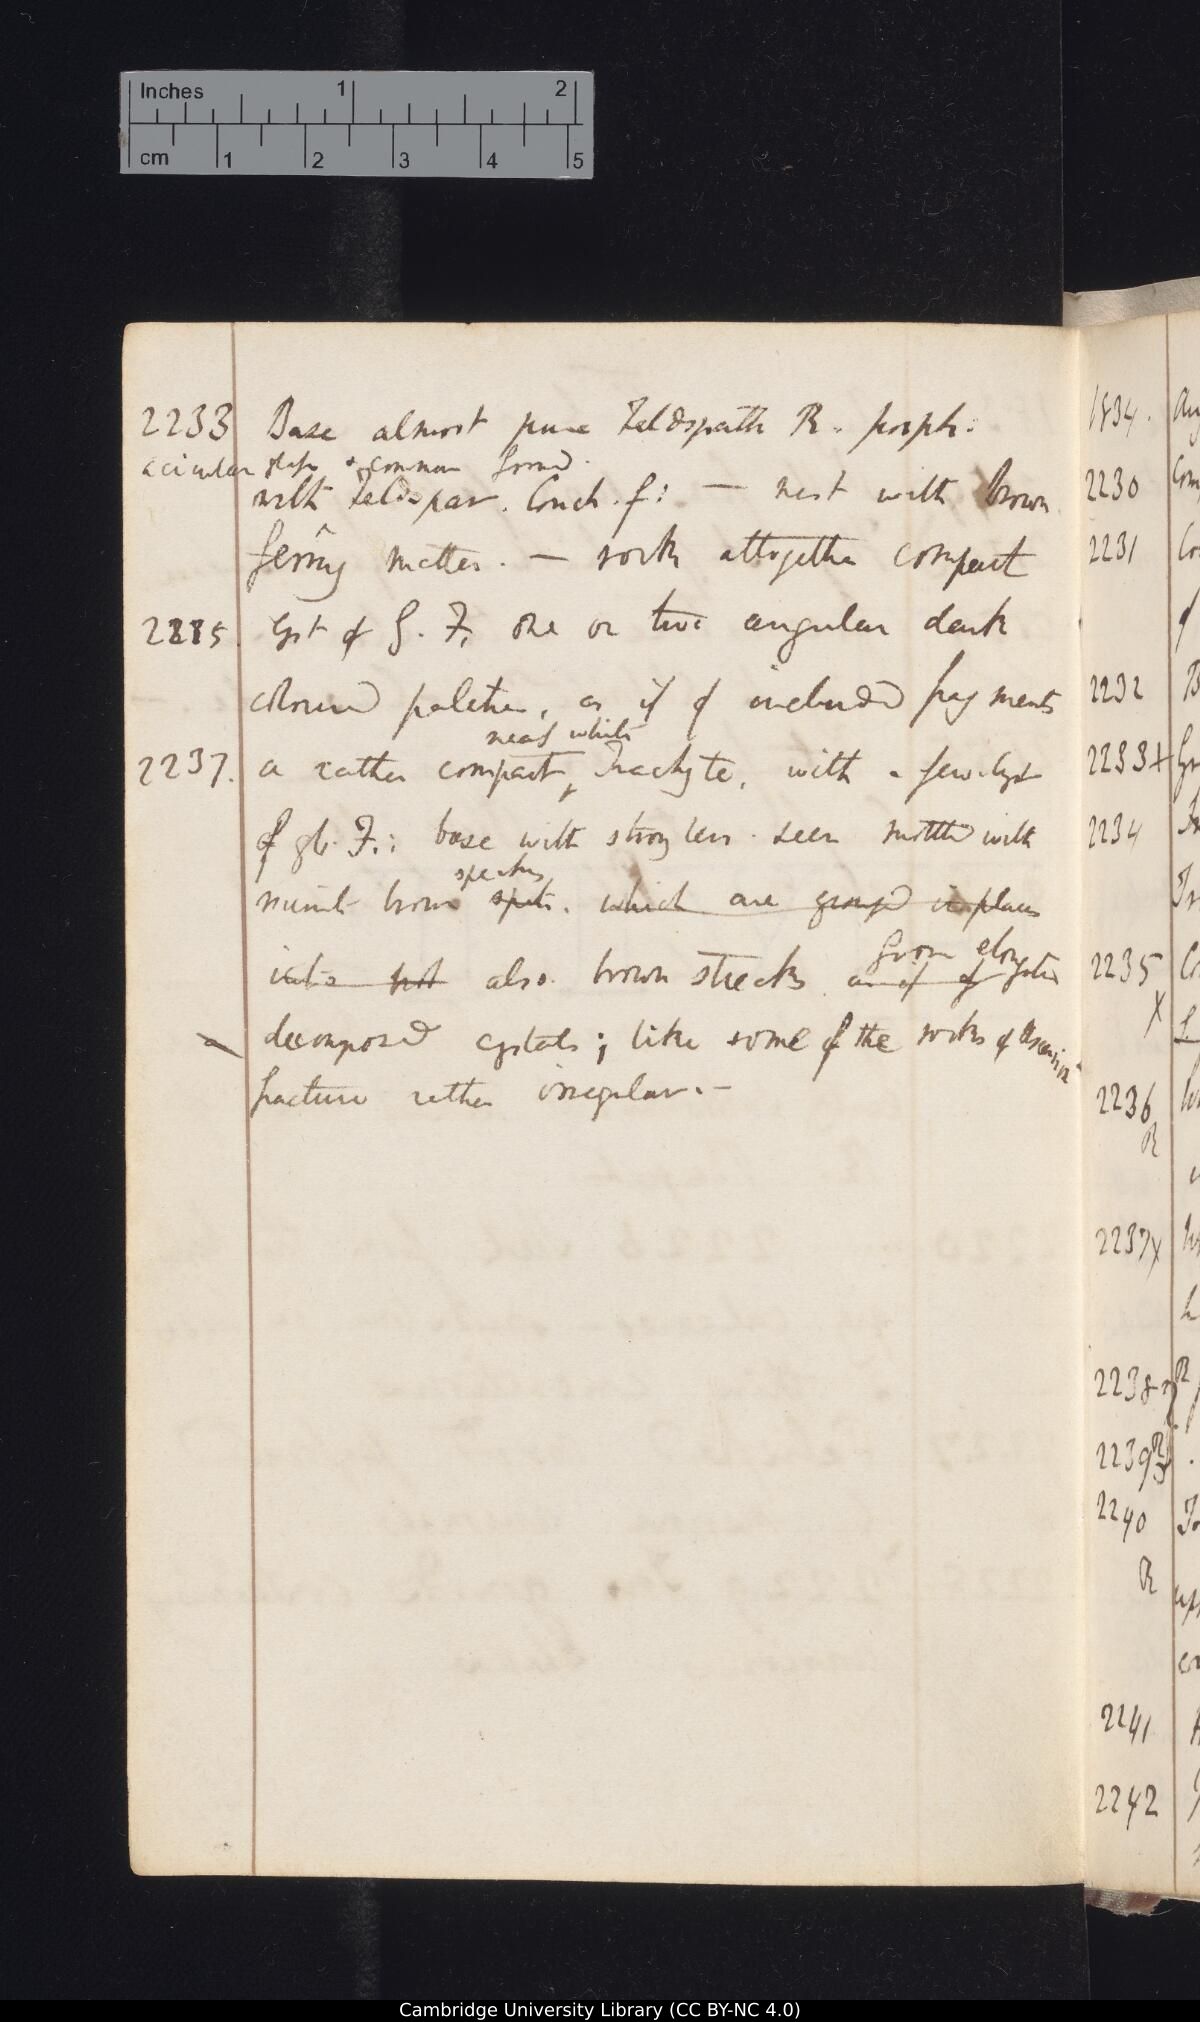 Inches 1 2
cm 1 2 3 4 5
2233 Base almost pure Feldspath R. porph:
acicular & common form
with Feldspar. Conch. f: — nest with brown
ferrug matter. — rock altogether compact
2235. Cryst of G. F. one or two angular dark
coloured patches, as if of included fragments
near white
2237. a rather compact, Trachyte, with a few cryst
of gl. F.: base with strong lens seen mottled with
specks
minute brown spots. which are group in places
from elongated
into also brown streaks as if of
decomposed crystals; like some of the rocks of Ascension
fracture rather irregular. —
1834.
2230
2231
2232
2233 X
2234
2235
X
2236
R
2237 X
2238
2239
2240
R
2241
2242
Cambridge University Library (CC BY-NC 4.0)